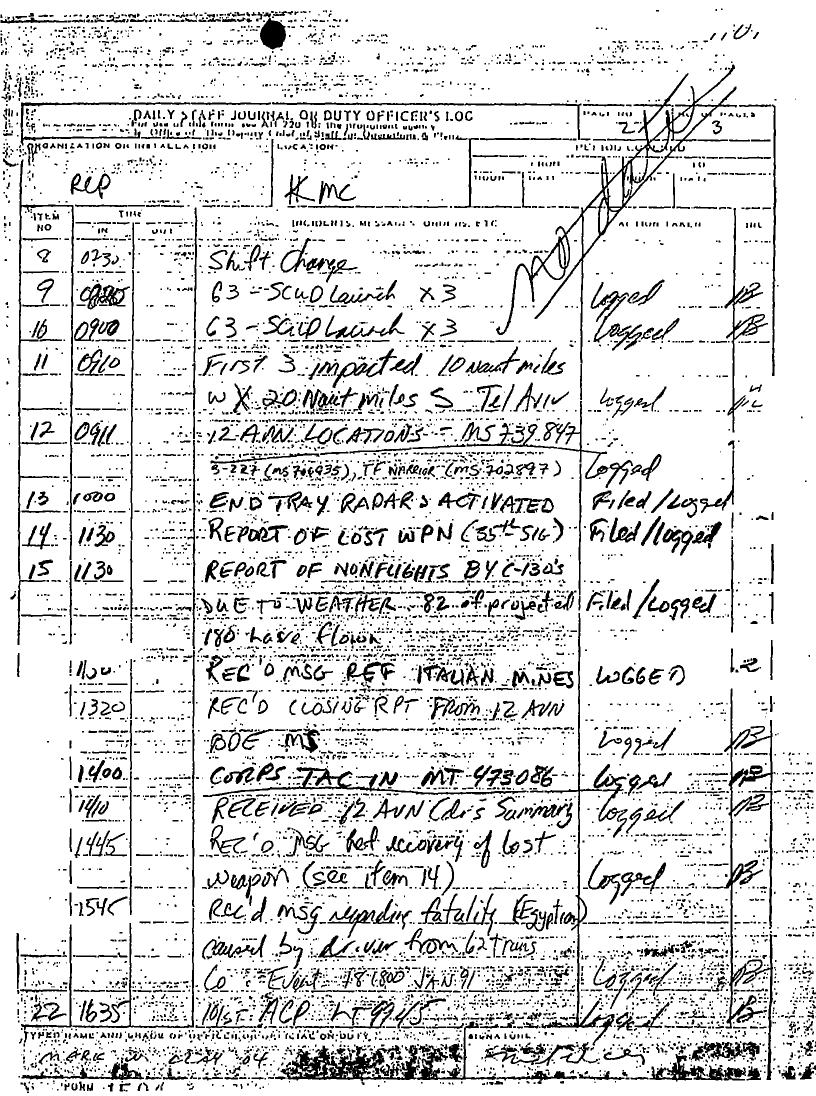 DAILY STAFF JOURNAL OR DUTY OFFICER'S LOG
For use of this form, see AR 220-15; the proponent agency
is Office of The Deputy Chief of Staff for Operations & Plans
PAGE NO. 2 NO. OF PAGES 3
ORGANIZATION OR INSTALLATION LOCATION PERIOD COVERED
FROM TO
HOUR DATE HOUR DATE
KMC
no date
ITEM NO TIME IN OUT INCIDENTS, MESSAGES, ORDERS, ETC. ACTION TAKEN INL
8 0730 Shift Change
9 63 - SCUD Launch X 3 Logged
10 0900 63 - SCUD Launch X 3 Logged
11 0910 First 3 impacted 10 Naut miles
W 20 Naut miles S Tel Aviv Logged
12 0911 12 AVN LOCATIONS - MS 739847
3-227 (MS 706935), TF WARRIOR (MS 702897) Logged
13 1000 END TRAY RADARS ACTIVATED Filed/Logged
14 1130 REPORT OF LOST WPN (35th SIG) Filed/Logged
15 1130 REPORT OF NONFLIGHTS BY C-130's
DUE TO WEATHER. 82 of projected Filed/Logged
180 have flown
REC'D MSG REF ITALIAN MINES LOGGED
1320 REC'D CLOSING RPT FROM 12 AVN
BDE MS Logged
1400 CORPS TAC IN MT 473086 Logged
1410 RECEIVED 12 AVN Cdr's Summary Logged
1445 REC'D MSG Ref recovery of lost
weapon (see item 14) Logged
1545 Rec'd msg regarding fatality (Egyptian)
caused by driver from 62 trans
Co. Event 181800 JAN 91 Logged
22 1635 101st ACP LT 9945 Logged
TYPED NAME AND GRADE OF OFFICER OR OFFICIAL ON DUTY SIGNATURE
FORM